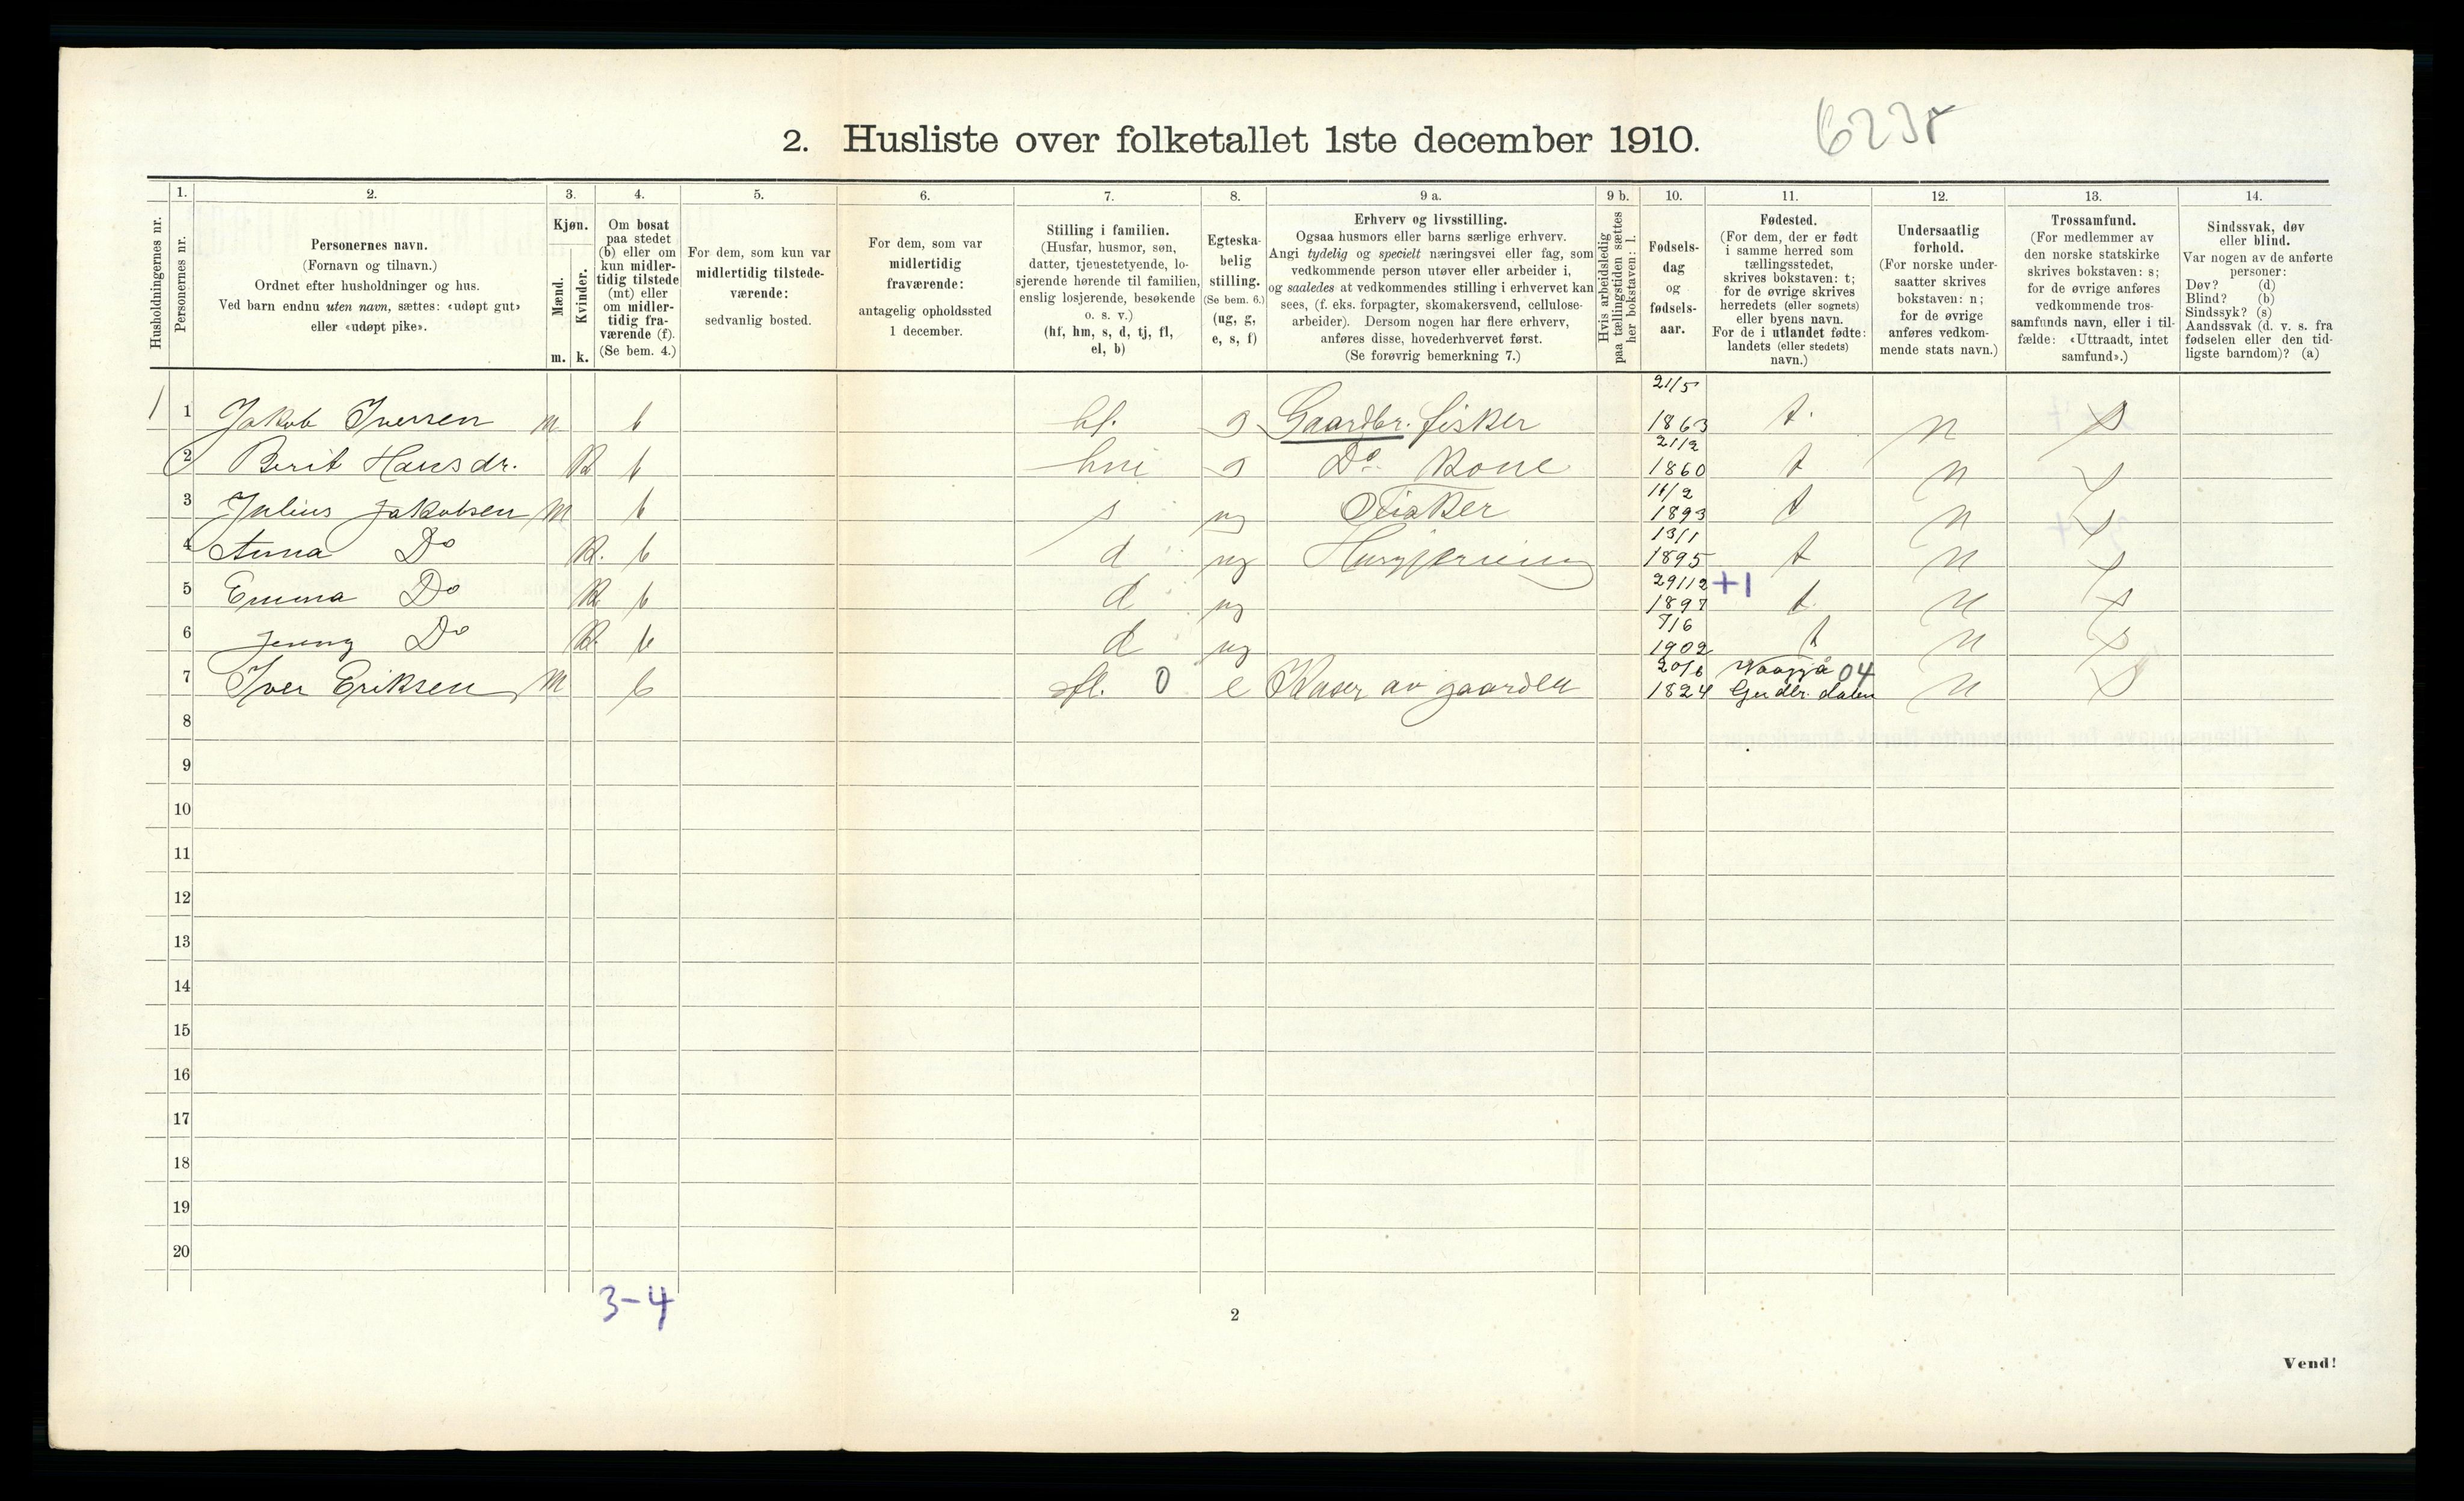 2. Husliste over folketallet 1ste december 1910.
6235
Husholdningernes nr.
1.
Personernes nr.
2.
Personernes navn.
(Fornavn og tilnavn.)
Ordnet efter husholdninger og hus.
Ved barn endnu uten navn, sættes: «udøpt gut»
eller «udøpt pike».
3.
Kjøn.
Mænd.
Kvinder.
m. k.
4.
Om bosat
paa stedet
(b) eller om
kun midler-
tidig tilstede
(mt) eller
om midler-
tidig fra-
værende (f).
(Se bem. 4.)
5.
For dem, som kun var
midlertidig tilstede-
værende:
sedvanlig bosted.
6.
For dem, som var
midlertidig
fraværende:
antagelig opholdssted
1 december.
7.
Stilling i familien.
(Husfar, husmor, søn,
datter, tjenestetyende, lo-
sjerende hørende til familien,
enslig losjerende, besøkende
o. s. v.)
(hf, hm, s, d, tj, fl,
el, b)
8.
Egteska-
belig
stilling.
(Se bem. 6.)
(ug, g,
e, s, f)
9 a.
Erhverv og livsstilling.
Ogsaa husmors eller barns særlige erhverv.
Angi tydelig og specielt næringsvei eller fag, som
vedkommende person utøver eller arbeider i,
og saaledes at vedkommendes stilling i erhvervet kan
sees, (f. eks. forpagter, skomakersvend, cellulose-
arbeider). Dersom nogen har flere erhverv,
anføres disse, hovederhvervet først.
(Se forøvrig bemerkning 7.)
9 b.
Hvis arbeidsledig
paa tællingstiden sættes
her bokstaven: l.
10.
Fødsels-
dag
og
fødsels-
aar.
11.
Fødested.
(For dem, der er født
i samme herred som
tællingsstedet,
skrives bokstaven: t;
for de øvrige skrives
herredets (eller sognets)
eller byens navn.
For de i utlandet fødte:
landets (eller stedets)
navn.)
12.
Undersaatlig
forhold.
(For norske under-
saatter skrives
bokstaven: n;
for de øvrige
anføres vedkom-
mende stats navn.)
13.
Trossamfund.
(For medlemmer av
den norske statskirke
skrives bokstaven: s;
for de øvrige anføres
vedkommende tros-
samfunds navn, eller i til-
fælde: «Uttraadt, intet
samfund».)
14.
Sindssvak, døv
eller blind.
Var nogen av de anførte
personer:
Døv? (d)
Blind? (b)
Sindssyk? (s)
Aandssvak (d. v. s. fra
fødselen eller den tid-
ligste barndom)? (a)
1 1 Jakob Iversen m b hf. g Gaardbr. fisker 21/5 1863 t. n s
2 Berit Hansdr. k b hm g Do. Kone 21/2 1860 t n s
3 Julius Jakobsen m b s ug Fisker 11/2 1893 t n s
4 Anna Do k. b d ug Husgjerning 13/1 1895 t n s
5 Emma Do k b d ug 29/12 1897 +1 t. n s
6 Jenny Do k. b d ug 7/6 1902 t n s
7 Iver Eriksen m b fl. 0 e Kaar av gaarden 20/6 1824 Vaagå 04 Gudbr. dalen n s
8
9
10
11
12
13
14
15
16
17
18
19
20
3-4
2
Vend!